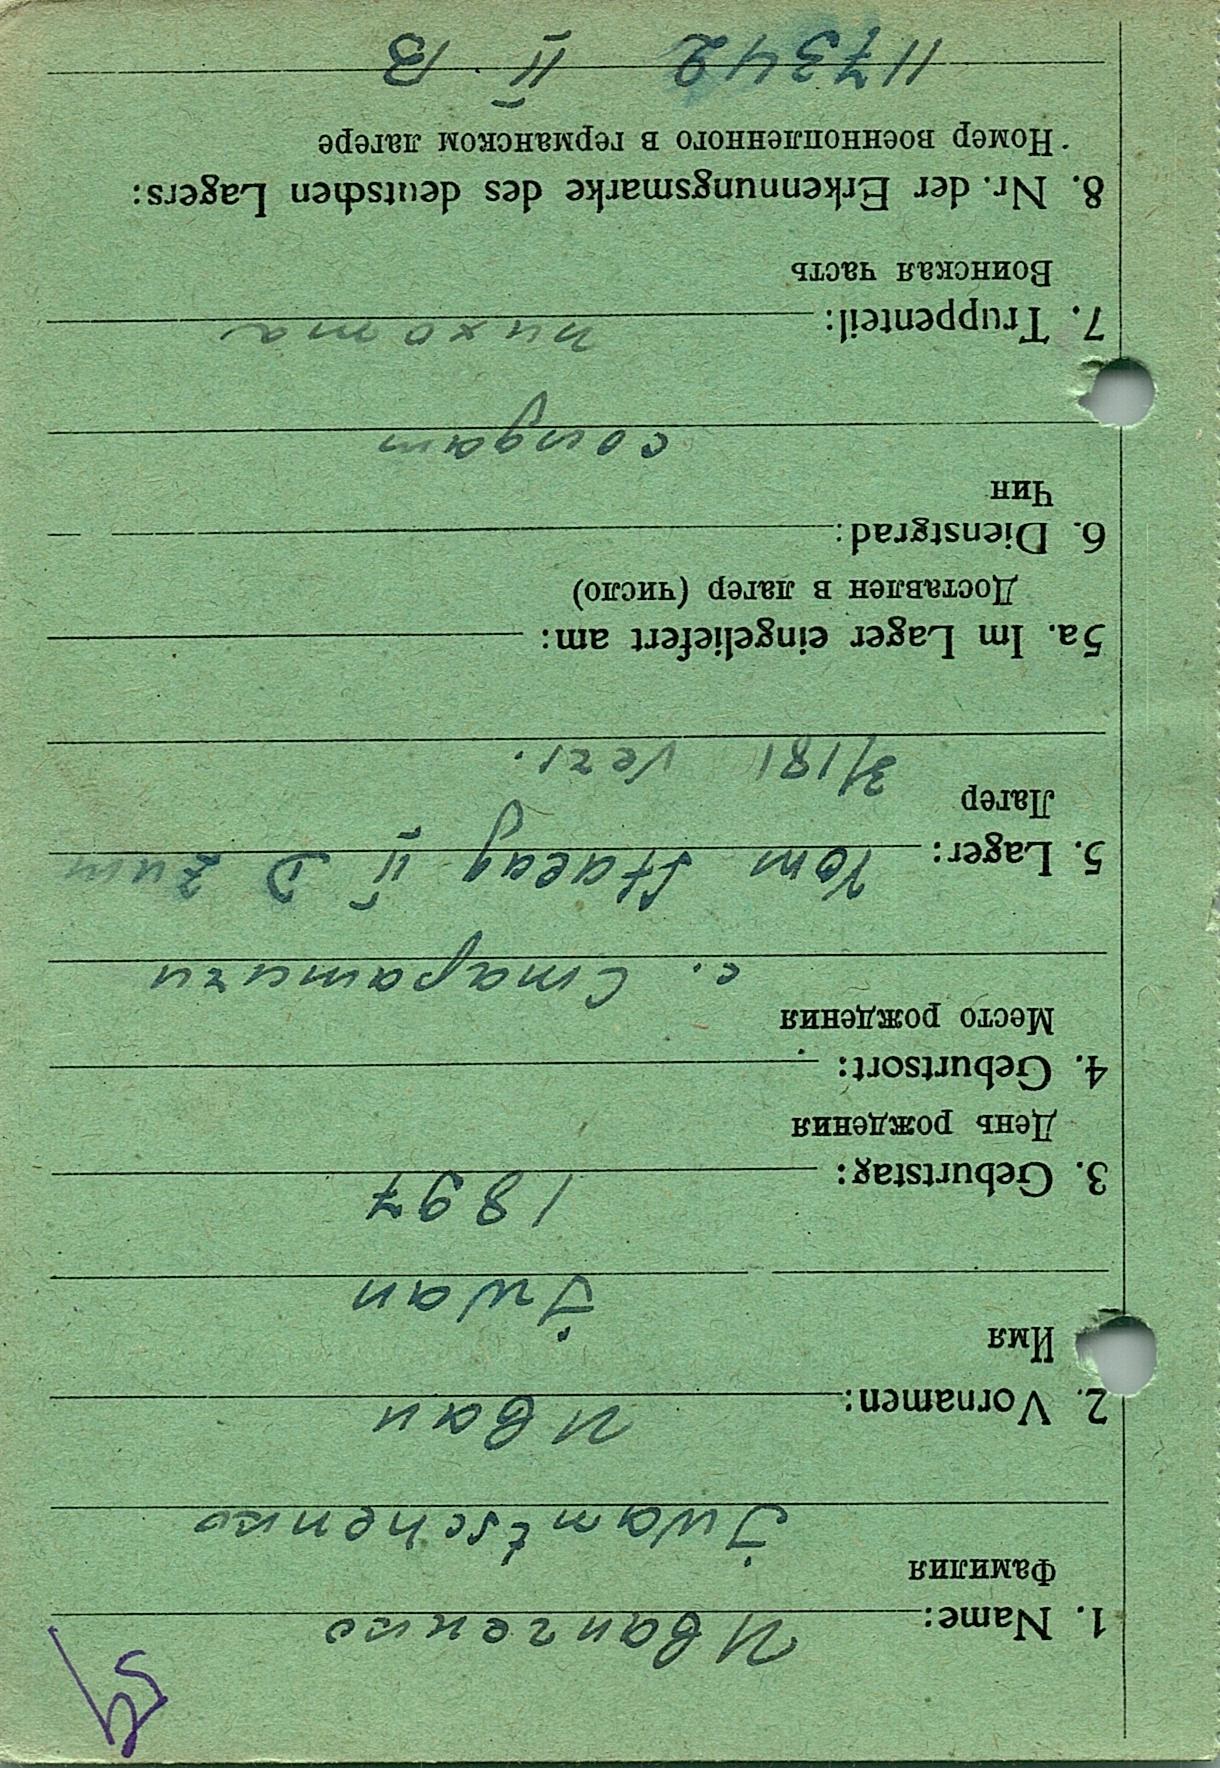 1. Name: Иванченко
Фамилия
Iwantschenko
2. Vornamen: Иван
Имя
Iwan
3. Geburtstag: 1897
День рождения
4. Geburtsort:
Место рождения
с. Старатичи
5. Lager: Vom Stalag II D zum
Лагер
3/181 verz.
5a. Im Lager eingeliefert am:
Доставлен в лагер (число)
6. Dienstgrad:
Чин
солдат
7. Truppenteil: пихота
Воинская часть
8. Nr. der Erkennungsmarke des deutschen Lagers:
Номер военнопленного в германском лагере
117342 II B